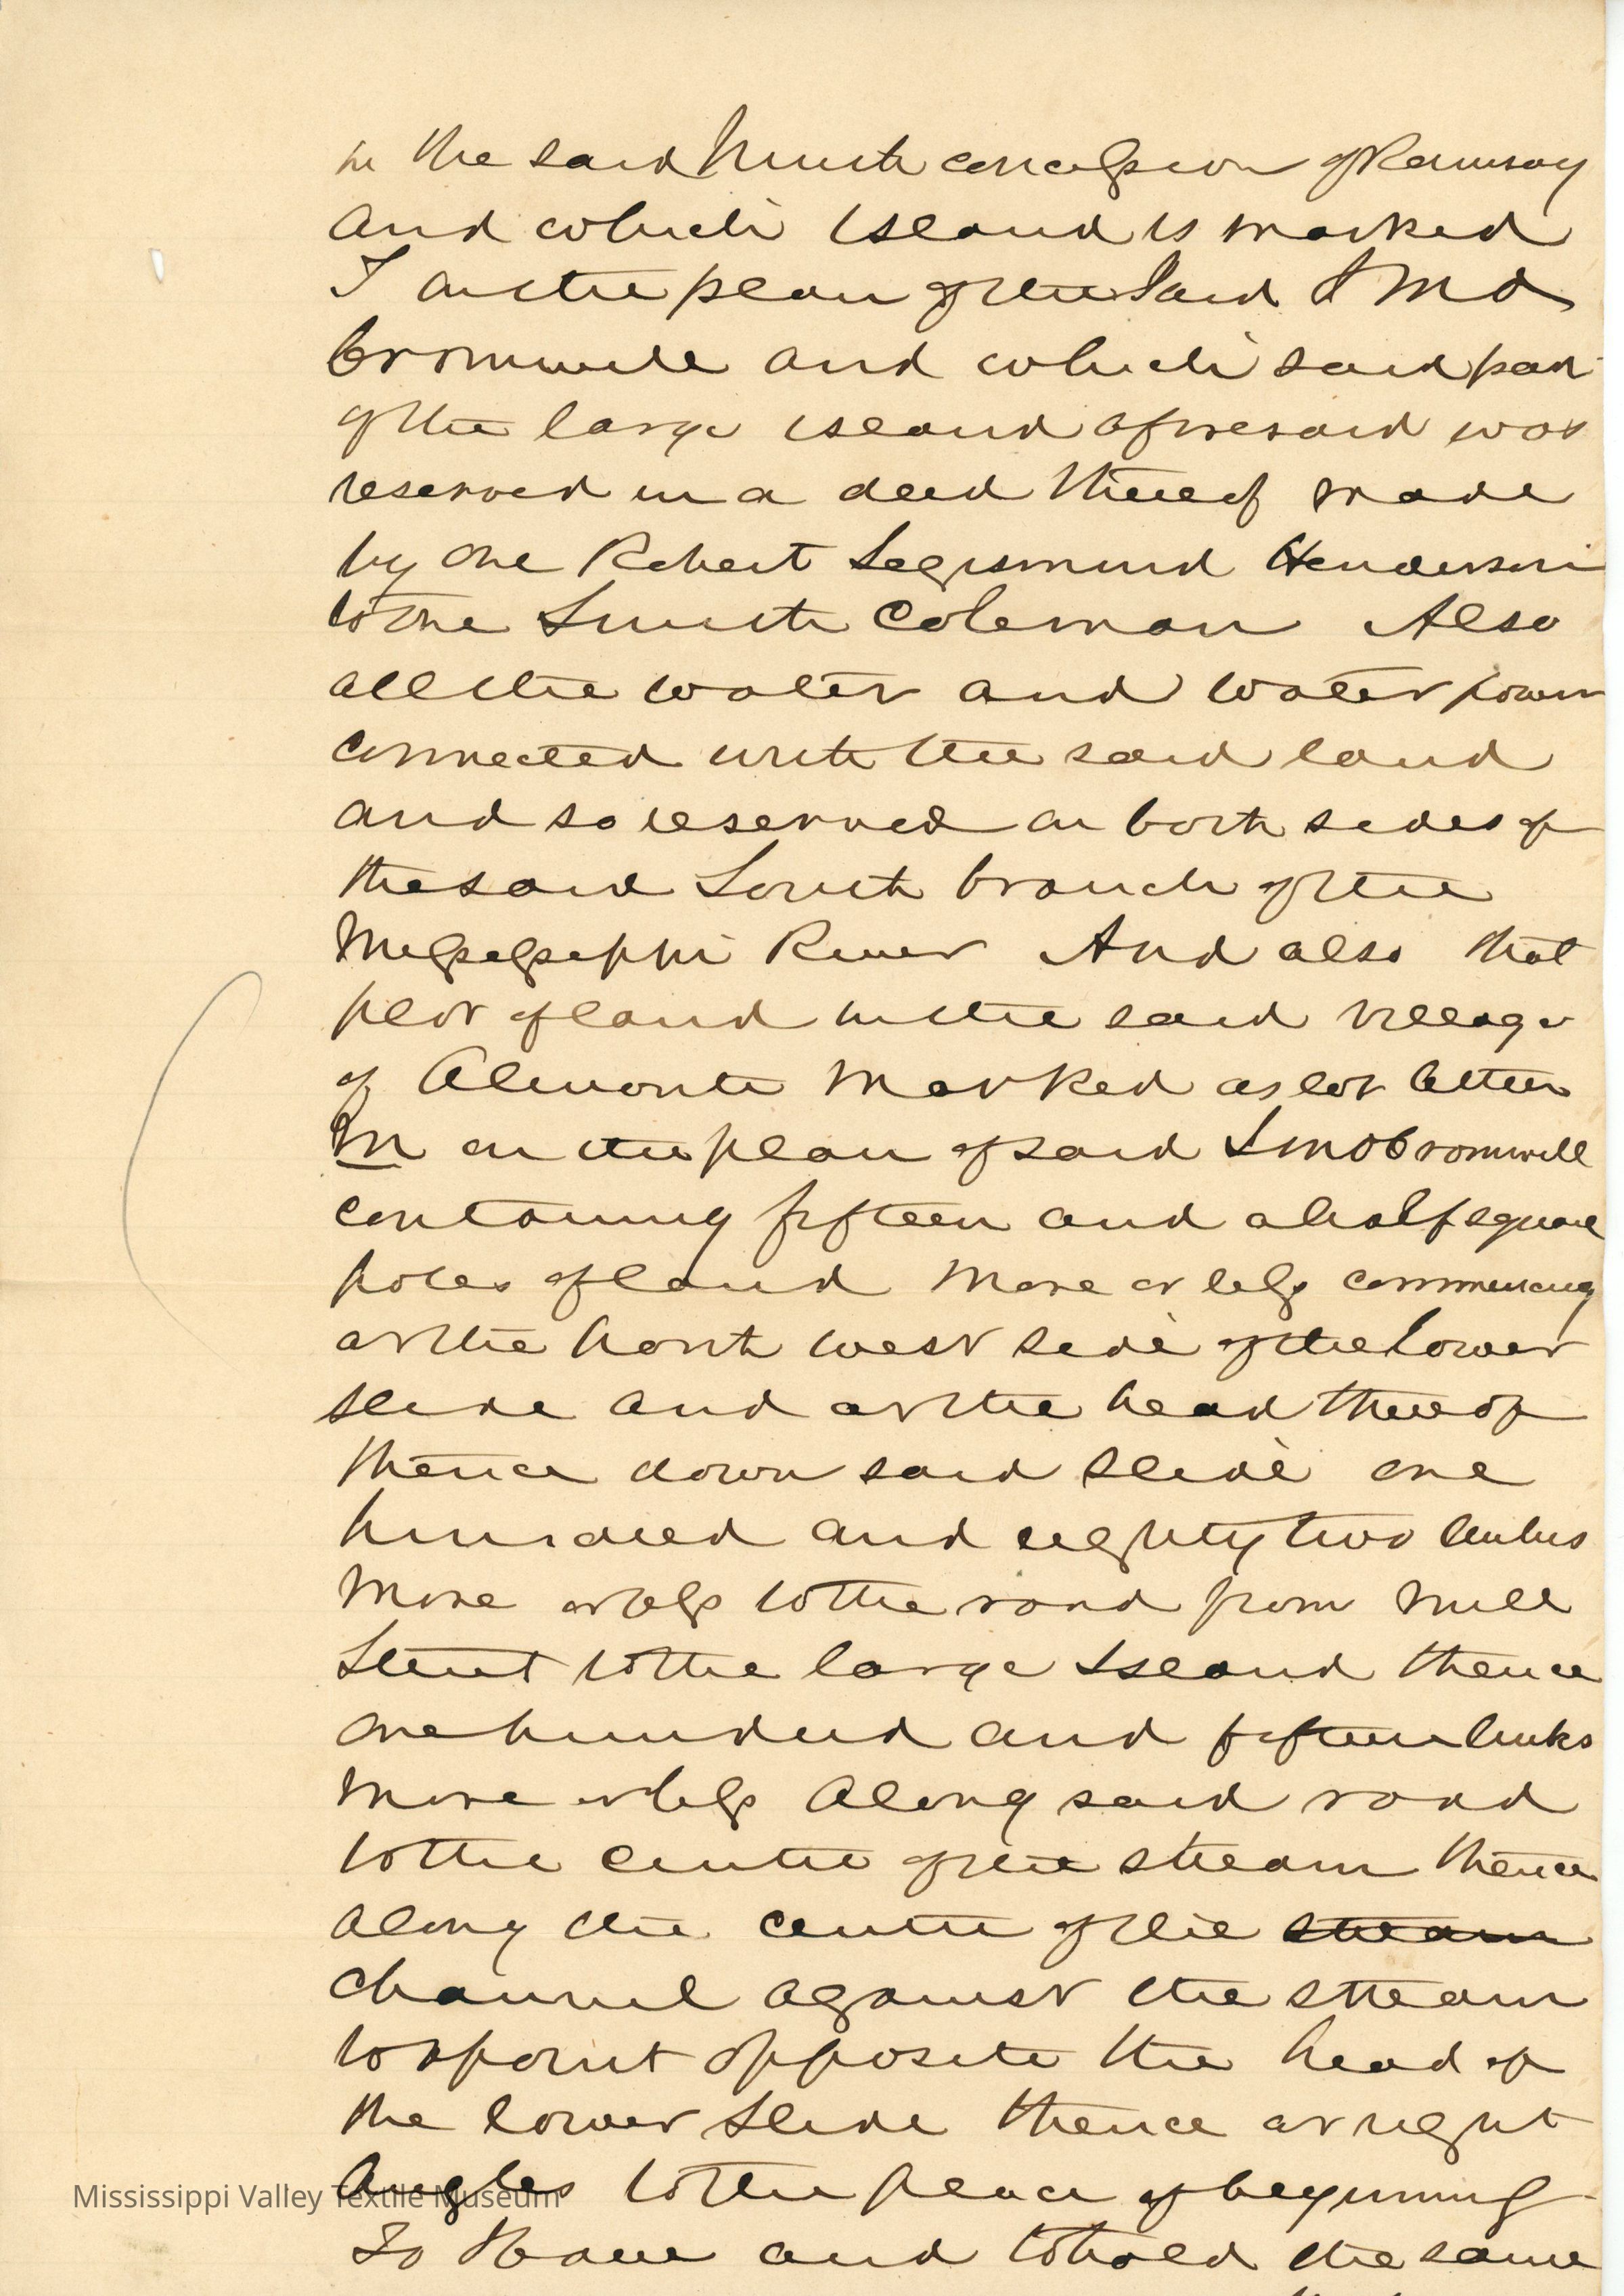 in the said Ninth concession of Ramsay
and which island is marked
I on the plan of the said J M O
Cromwell and which said part
of the large island aforesaid was
reserved in a deed thereof made
by one Robert Segismund Henderson
to one Smith Coleman Also
all the water and water power
connected with the said land
and so reserved on both sides of
the said South branch of the
Mississippi River And also that
plot of land in the said village
of Almonte Marked as lot letter
M on the plan of said J M O Cromwell
containing fifteen and a half square
poles of land More or less commencing
at the North west side of the lower
slide and at the head thereof
thence down said slide one
hundred and eighty two links
More or less to the road from Mill
Street to the large Island thence
one hundred and fifteen links
More or less Along said road
to the centre of the stream thence
Along the centre of the stream
Channel against the stream
to a point opposite the head of
the lower Slide thence at right
Angles to the place of beginning
Mississippi Valley Textile Museum
To Have and to hold the same